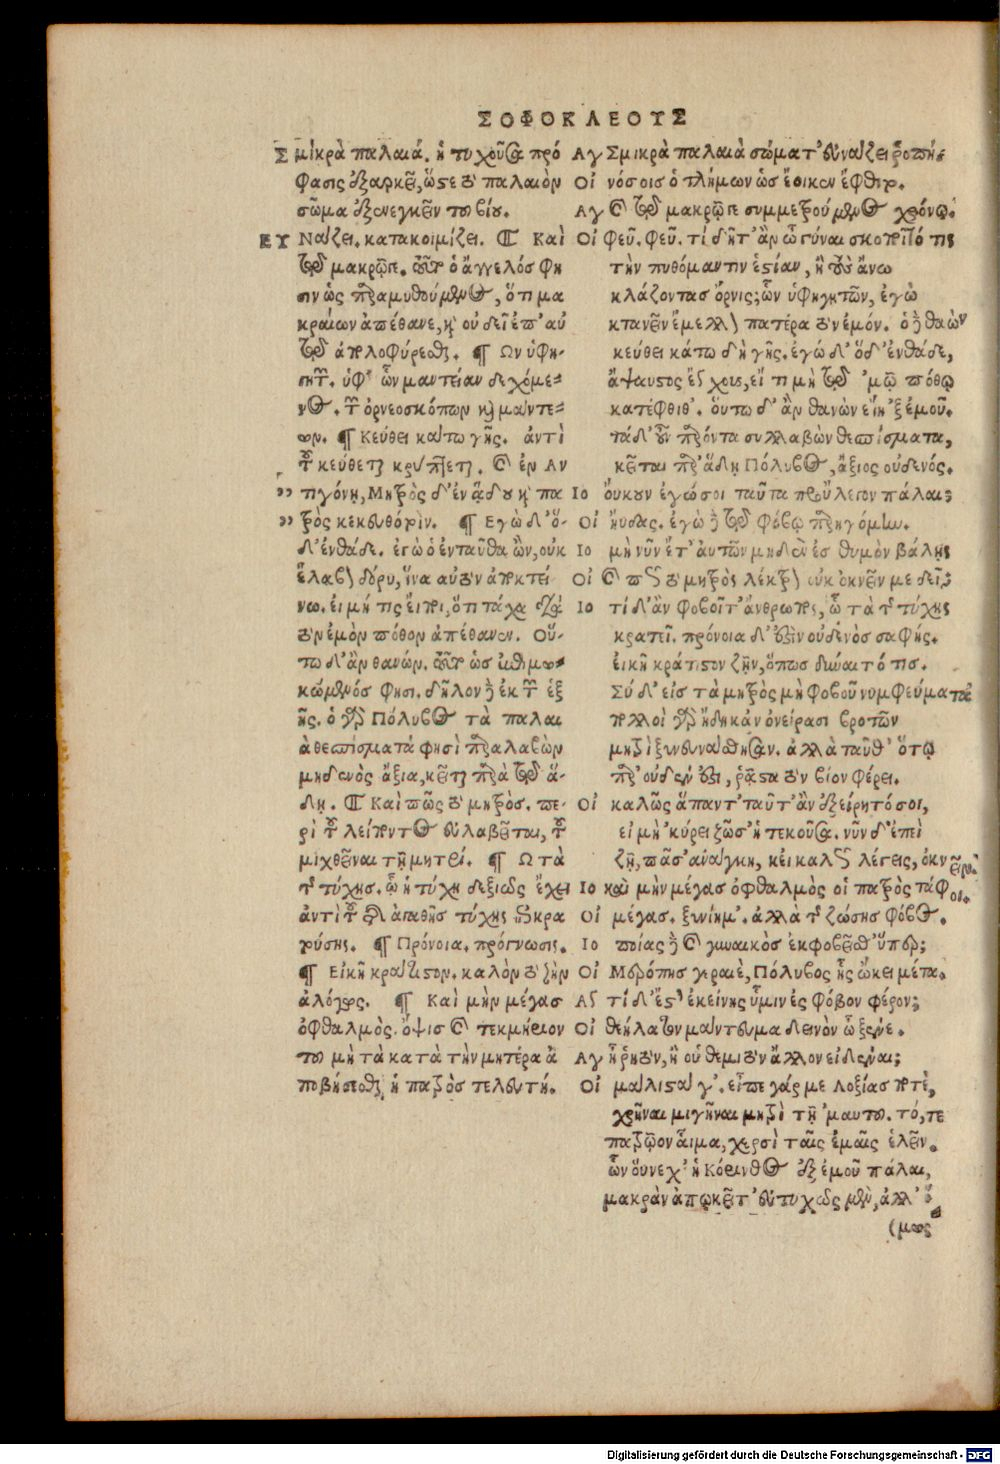 ΣΟΦΟΚΛΕΟΥΣ
Σμικρὰ παλαιά. ἡ τυχοῦσα πρό
φασις ἐξαρκεῖ, ὥστε τὸ παλαιὸν
σῶμα ἐξενεγκεῖν τοῦ βίου.
ΕΥ Νάζει. κατακοιμίζει. ¶ Καὶ
τῷ μακρῷ γε. ὁ ἄγγελός φη
σιν ὡς παραμυθούμενος, ὅτι μα
κραίων ἀπέθανε, καὶ οὐ δεῖ ἐπ' αὐ
τῷ ἀπολοφύρεσθαι. ¶ Ων ὑφη-
γητῶν. ὑφ' ὧν μαντείαν δεχόμε-
νος. τῶν ὀρνεοσκόπων καὶ μάντε-
ων. ¶ Κεύθει κάτω γῆς. ἀντὶ
τοῦ κεύθεται κρύπτεται. ὡς ἐν Αν
" τιγόνῃ, Μητρὸς δ' ἐν ᾅδου καὶ πα
" τρὸς κεκευθότοιν. ¶ Εγὼ δ' ὅ-
δ' ἐνθάδε. ἐγὼ ὁ ἐνταῦθα ὢν, οὐκ
ἔλαβον δόρυ, ἵνα αὐτὸν ἀποκτεί
νω. εἰ μή τις εἴποι, ὅτι τάχα διὰ
τὸν ἐμὸν πόθον ἀπέθανεν. Οὕ-
τω δ' ἂν θανών.
κώμενός φησι. δῆλον δὲ ἐκ τῶν ἑξ
ῆς. ὁ γὰρ Πόλυβος τὰ παλαι
ὰ θεσπίσματά φησὶ παραλαβὼν
μηδενὸς ἄξια, κεῖται παρὰ τῷ ἅ-
δῃ. ¶ Καὶ πῶς τὸ μητρὸς. πε-
ρὶ τοῦ λείποντος εὐλαβεῖται, τοῦ
μιχθῆναι τῇ μητρί. ¶ Ω τὰ
τῆς τύχης. ᾧ ἡ τύχη δεξιῶς ἔχει
ἀντὶ τοῦ διὰ ἀπαθῆς τύχης
ρύσης. ¶ Πρόνοια. πρόγνωσις.
¶ Εἰκῆ κράτιστον. καλὸν τὸ ζῆν
ἀλόγως. ¶ Καὶ μὴν μέγας
ὀφθαλμὸς. ὄψις ὡς τεκμήριον
τοῦ μὴ τὰ κατὰ τὴν μητέρα ἀ
ποβήσεσθαι, ἡ πατρὸς τελευτή.
Αγ Σμικρὰ παλαιὰ σώματ' εὐνάζει ῥοπή.
Οἰ νόσοις ὁ τλήμων ὡς ἔοικεν ἔφθιτο.
Αγ καὶ τῷ μακρῷ γε συμμετρούμενος χρόνῳ.
Οἰ Φεῦ. φεῦ. τί δῆτ' ἂν ὦ γύναι σκοποῖτό τις
τὴν πυθόμαντιν ἑστίαν, ἢ τοὺς ἄνω
κλάζοντας ὄρνις; ὧν ὑφηγητῶν, ἐγὼ
κτανεῖν ἔμελλον πατέρα τὸν ἐμόν. ὁ δὲ θανὼν
κεύθει κάτω δὴ γῆς. ἐγὼ δ' ὅδ' ἐνθάδε,
ἄψαυστος ἔγχους, εἴ τι μὴ τῷ 'μῷ πόθῳ
κατέφθιθ'. οὕτω δ' ἂν θανὼν εἴη 'ξ ἐμοῦ.
τὰ δ' οὖν παρόντα συλλαβὼν θεσπίσματα,
κεῖται παρ' ᾅδῃ Πόλυβος, ἄξιος οὐδενός.
Ιο οὔκουν ἐγώ σοι ταῦτα προὔλεγον πάλαι;
Οἰ ηὔδας. ἐγὼ δὲ τῷ φόβῳ παρηγόμην.
Ιο μὴ νῦν ἔτ' αὐτῶν μηδὲν ἐς θυμὸν βάλῃς
Οἰ καὶ πῶς τὸ μητρὸς λέκτρον οὐκ ὀκνεῖν με δεῖ;
Ιο τί δ' ἂν φοβοῖτ' ἄνθρωπος, ᾧ τὰ τῆς τύχης
κρατεῖ. πρόνοια δ' ἐστὶν οὐδενὸς σαφής.
εἰκῆ κράτιστον ζῆν, ὅπως δύναιτό τις.
Σύ δ' εἰς τὰ μητρὸς μὴ φοβοῦ νυμφεύματα
πολλοὶ γὰρ ἤδη κἀν ὀνείρασι βροτῶν
μητρὶ ξυνευνάσθησαν. ἀλλὰ ταῦθ' ὅτῳ
παρ' οὐδέν ἐστι, ῥᾷστα τὸν βίον φέρει.
Οἰ καλῶς ἅπαντ' ταῦτ' ἂν ἐξείρητό σοι,
εἰ μὴ 'κύρει ζῶσ' ἡ τεκοῦσα. νῦν δ' ἐπεὶ
ζῇ, πᾶσ' ἀνάγκη, κεἰ καλῶς λέγεις, ὀκνεῖν.
Ιο καὶ μὴν μέγας ὀφθαλμὸς οἱ πατρὸς τάφοι.
Οἰ μέγας. ξυνίημ'. ἀλλὰ τῆς ζώσης φόβος.
Ιο ποίας δὲ καὶ γυναικὸς ἐκφοβεῖσθ' ὕπερ;
Οἰ Μερόπης γεραιὲ, Πόλυβος ἧς ᾤκει μέτα.
Αγ τί δ' ἔστ' ἐκείνης ὑμῖν ἐς φόβον φέρον;
Οἰ θεήλατον μάντευμα δεινὸν ὦ ξένε.
Αγ ἦ ῥητὸν, ἢ οὐ θεμιτὸν ἄλλον εἰδέναι;
Οἰ μάλιστά γ'. εἶπε γάρ με Λοξίας ποτὲ,
χρῆναι μιγῆναι μητρὶ τῇ 'μαυτοῦ. τό, τε
πατρῷον αἷμα, χερσὶ ταῖς ἐμαῖς ἑλεῖν.
ὧν οὕνεχ' ἡ Κόρινθος ἐξ ἐμοῦ πάλαι,
μακρὰν ἀπῳκεῖτ' εὐτυχῶς μὲν, ἀλλ' ὅ
(μως
Digitalisierung gefördert durch die Deutsche Forschungsgemeinschaft - DFG